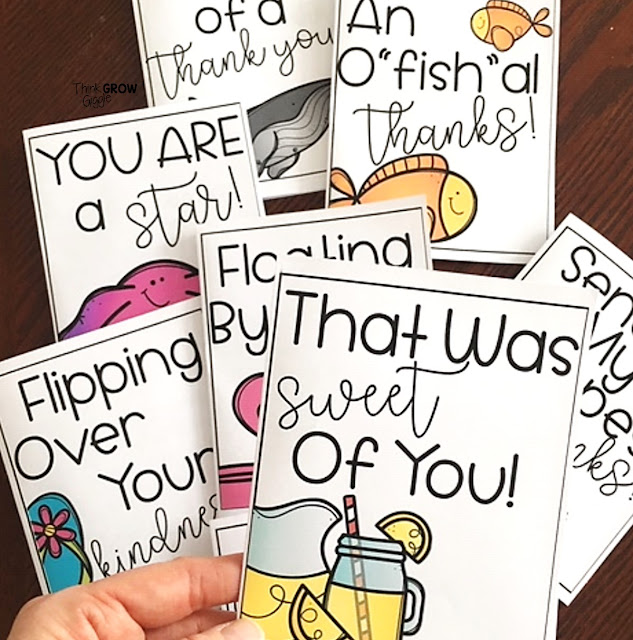 of a
thank you
An
O"fish"al
thanks!
Think GROW
Giggle
YOU ARE
a star!
Floating
By
That Was
sweet
Of You!
Flipping
Over
Your
kindness
My